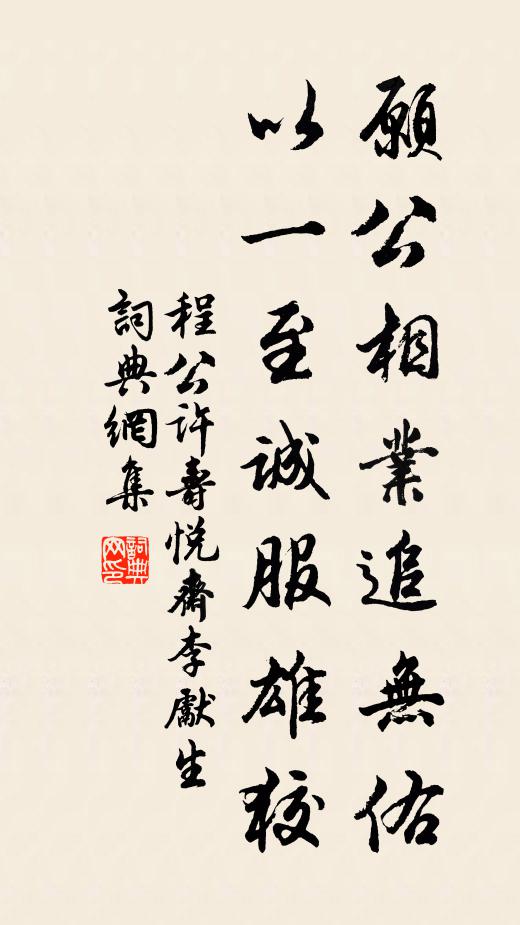 願公相業追無佑
以一至誠服雄狡
程公許壽悅齋李獻生
詞典網集
詞典网印